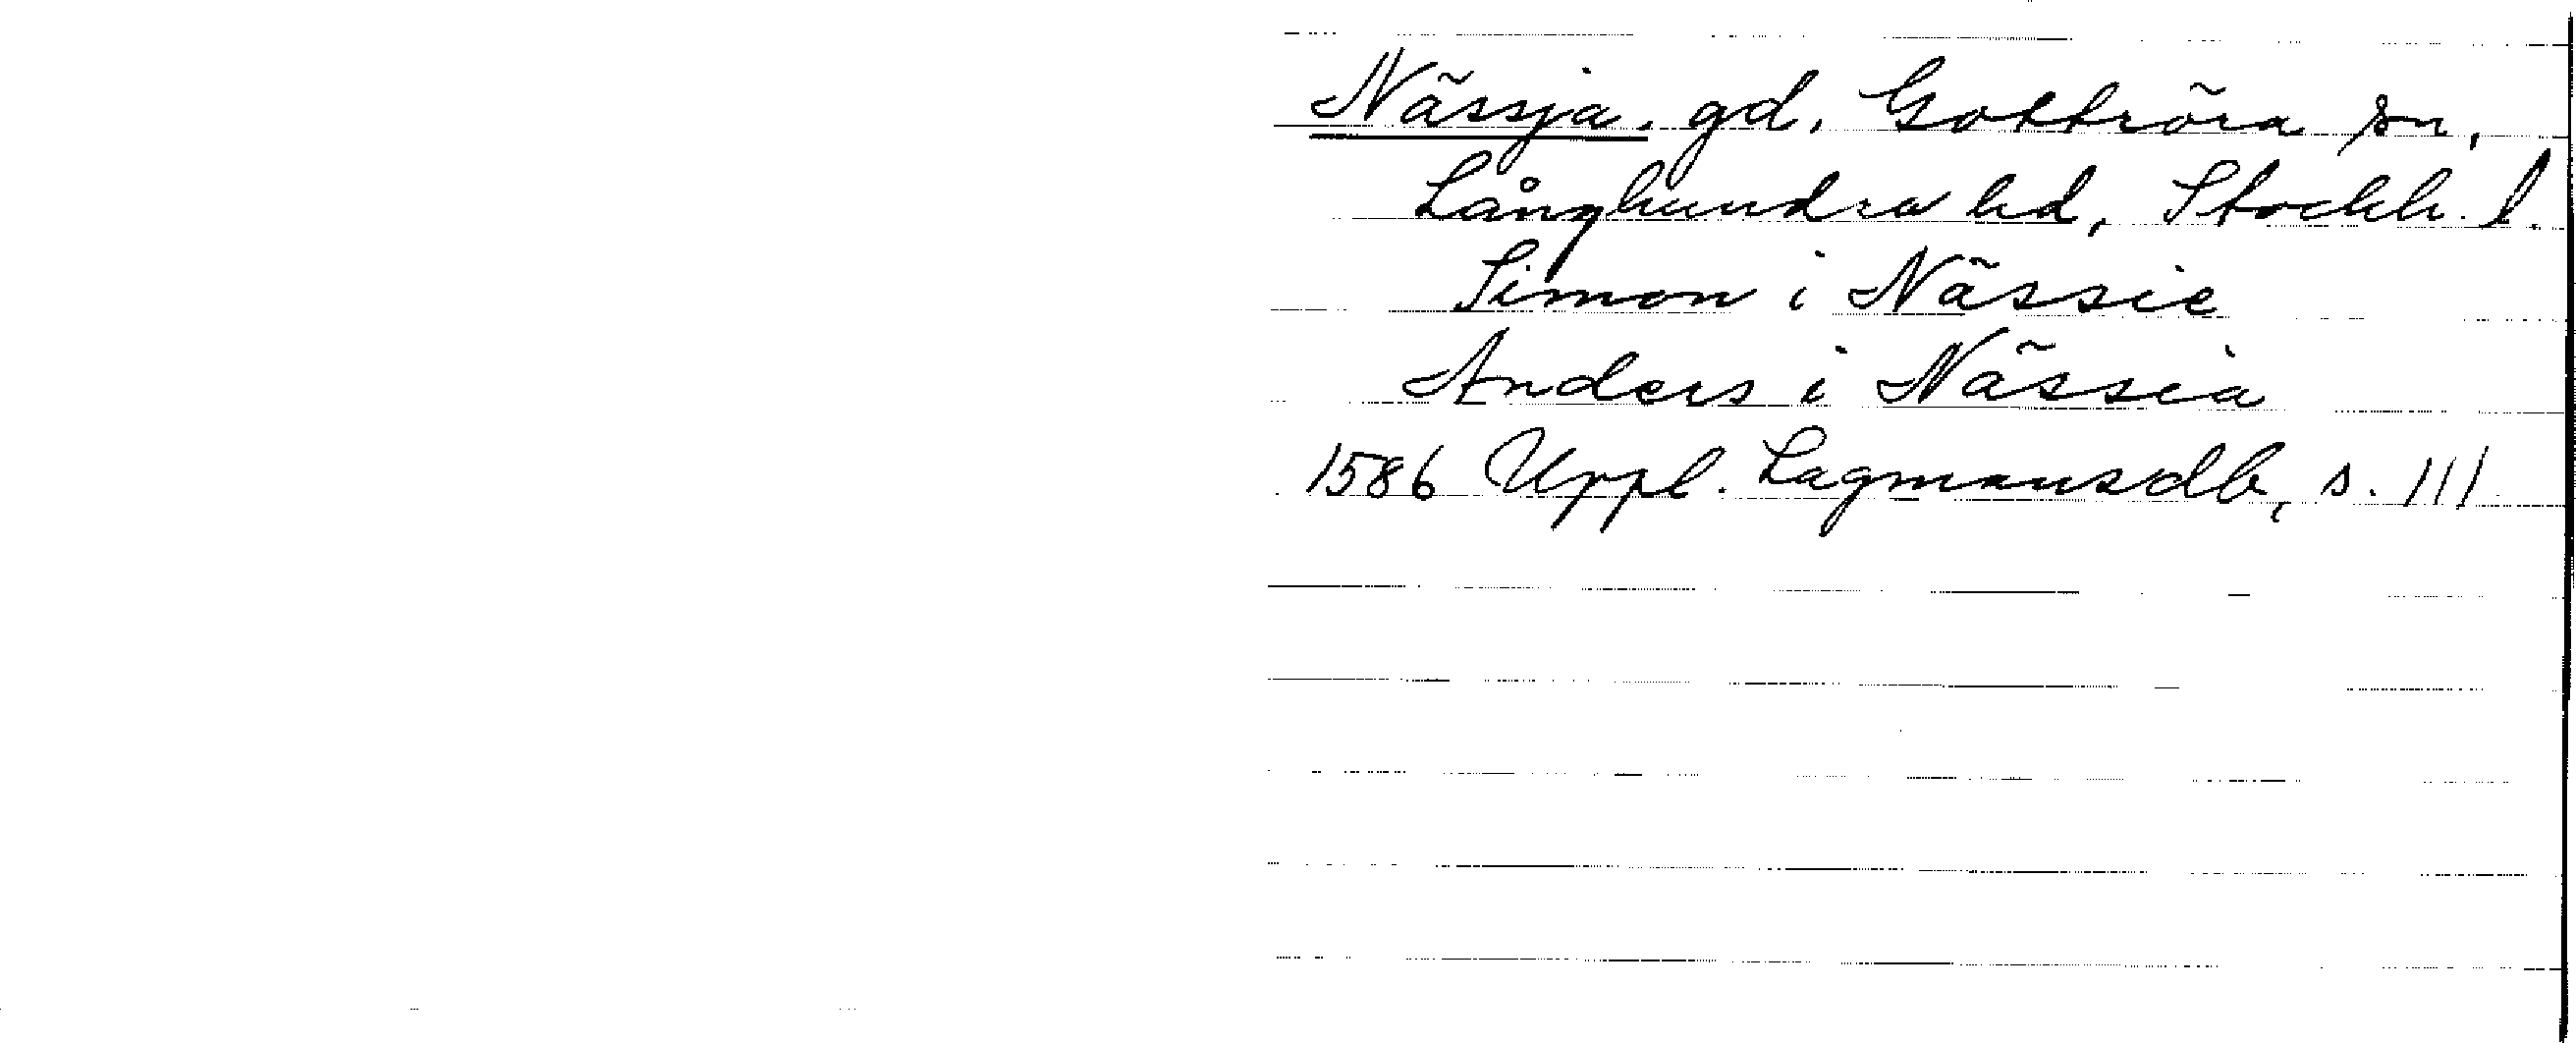 Nässja. gd. Gottröra sn,
Långhundra hd, Stockh. l.
Simon i Nässie
Anders i Nässia
1586 Uppl. Lagmansdb, s. 111